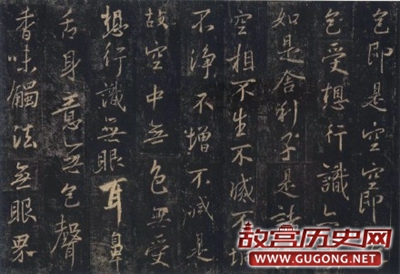 色即是空空即
色受想行識
如是舍利子是諸
空相不生不滅不垢
不淨不增不減是
故空中無色無受
想行識無眼耳鼻
舌身意無色聲
香味觸法無眼界
故宫历史网
WWW.GUGONG.NET